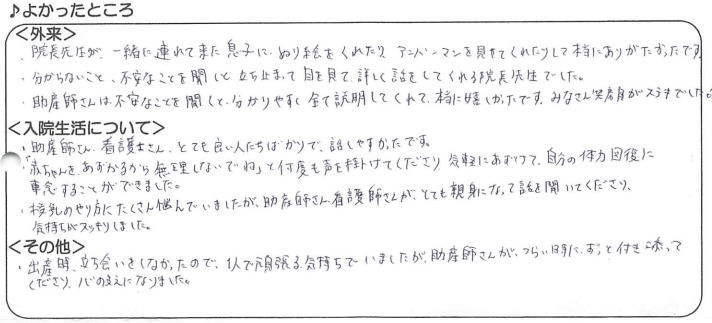 ♪よかったところ
<外来>
・院長先生が、一緒に連れて来た息子に、ぬり絵をくれたり、アンパンマンを見せてくれたりして本当にありがたかったです。
・分からないこと、不安なことを聞くと立ち止まって目を見て、詳しく話をしてくれる院長先生でした。
・助産師さんは不安なことを聞くと、分かりやすく全て説明してくれて、本当に嬉しかったです。みなさん笑顔がステキでした。
<入院生活について>
・助産師さん、看護士さん、とても良い人たちばかりで、話しやすかったです。
・「赤ちゃんを、あずかるから無理しないでね」と何度も声を掛けてくださり、気軽にあずけて、自分の体力回復に
専念することができました。
・授乳のやり方にたくさん悩んでいましたが、助産師さん、看護師さんが、とても親身になって話を聞いてくださり、
気持ちがスッキリしました。
<その他>
・出産時、立ち会いをしなかったので、1人で頑張る気持ちでいましたが、助産師さんが、つらい時に、ずっと付き添って
くださり、心の支えになりました。